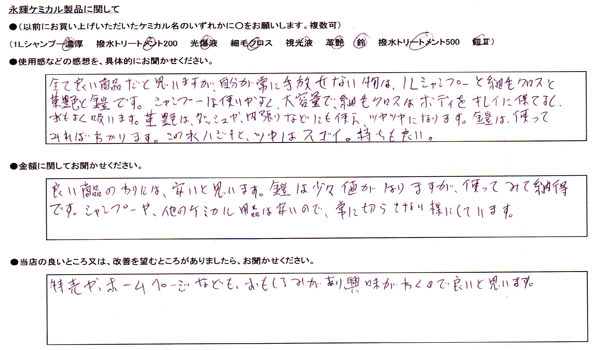 永輝ケミカル製品に関して
●(以前にお買い上げいただいたケミカル名のいずれかに〇をお願いします。複数可)
(1Lシャンプー濃厚 撥水トリートメント200 光傷液 細毛クロス 視光液 革艶 鈴 撥水トリートメント500 鎧Ⅱ)
●使用感などの感想を、具体的にお聞かせください。
全て良い商品だと思いますが、自分が常に手放せない物は、1Lシャンプーと細毛クロスと
革艶と鎧です。シャンプーは使いやすく、大容量で、細毛クロスはボディをキレイに保てるし、
水もよく吸います。革艶は、ダッシュや、内張りなどにも使え、ツヤツヤになります。鎧は、使って
みればわかります。この水ハジキと、ツヤはスゴイ。持ちも良い。
●金額に関してお聞かせください。
良い商品のわりには、安いと思います。鎧は少々値がはりますが、使ってみて納得
です。シャンプーや、他のケミカル用品は安いので、常に切らさない様にしています。
●当店の良いところ又は、改善を望むところがありましたら、お聞かせください。
特売や、ホームページなども、おもしろみがあり興味がわくので良いと思います。